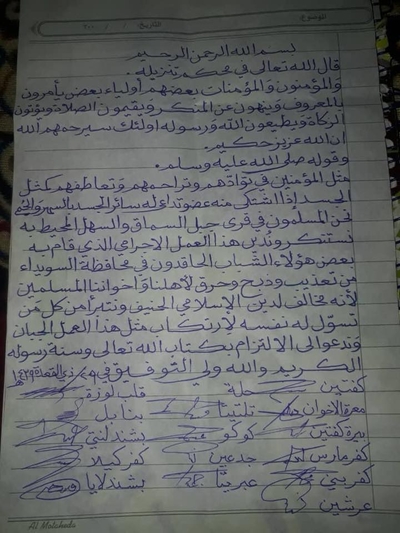 الموضوع التاريخ / / ٢٠٠
بسم الله الرحمن الرحيم
قال الله تعالى في محكم تنزيله.
والمؤمنون والمؤمنات بعضهم أولياء بعض يأمرون
بالمعروف وينهون عن المنكر ويقيمون الصلاة ويؤتون
الزكاة ويطيعون الله ورسوله اولئك سيرحمهم الله
ان الله عزيز حكيم.
وقوله صلى الله عليه وسلم.
مثل المؤمنين في توادهم وتراحمهم وتعاطفهم كمثل
الجسد اذا اشتكى منه عضو تداعى له سائر الجسد بالسهر والحمى
نحن المسلمون في قرى جبل السماق والسهل المحيط به
نستنكر وندين هذا العمل الاجرامي الذي قام به
بعض هؤلاء الشباب الحاقدون في محافظة السويداء
من تعذيب وذبح وحرق لأهلنا واخواننا المسلمين
لأنه مخالف لدين الإسلامي الحنيف ونتبرأ من كل من
تسول له نفسه لإرتكاب مثل هذا العمل الجبان
وندعو الى الالتزام بكتاب الله تعالى وسنة رسوله
الكريم والله ولي التوفيق في ذي القعدة
كفتين حلة قلب لوزة
معرة الاخوان تلتيتا بنابل
بيرة كفتين كوكو بشندلنتي
كفر مارس جدعين كفر كيلا
كفربني عبريتا بشندلايا
عرشين
Al Motaheda